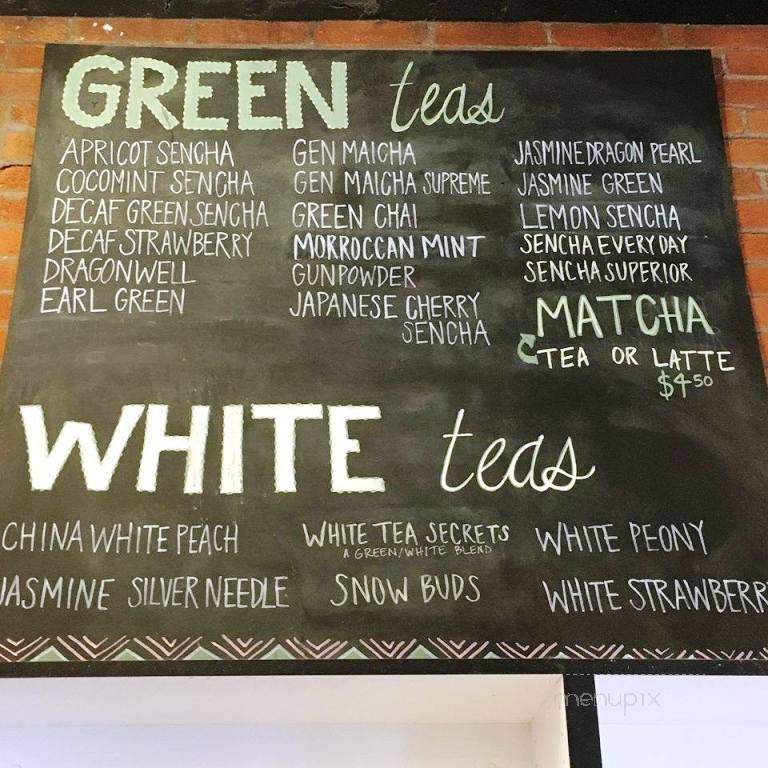 GREEN teas
APRICOT SENCHA
COCOMINT SENCHA
DECAF GREEN SENCHA
DECAF STRAWBERRY
DRAGONWELL
EARL GREEN
GEN MAICHA
GEN MAICHA SUPREME
GREEN CHAI
MORROCCAN MINT
GUNPOWDER
JAPANESE CHERRY
SENCHA
JASMINE DRAGON PEARL
JASMINE GREEN
LEMON SENCHA
SENCHA EVERY DAY
SENCHA SUPERIOR
MATCHA
TEA OR LATTE
$4.50
WHITE teas
CHINA WHITE PEACH
JASMINE SILVER NEEDLE
WHITE TEA SECRETS
A GREEN/WHITE BLEND
SNOW BUDS
WHITE PEONY
WHITE STRAWBERR
menupix